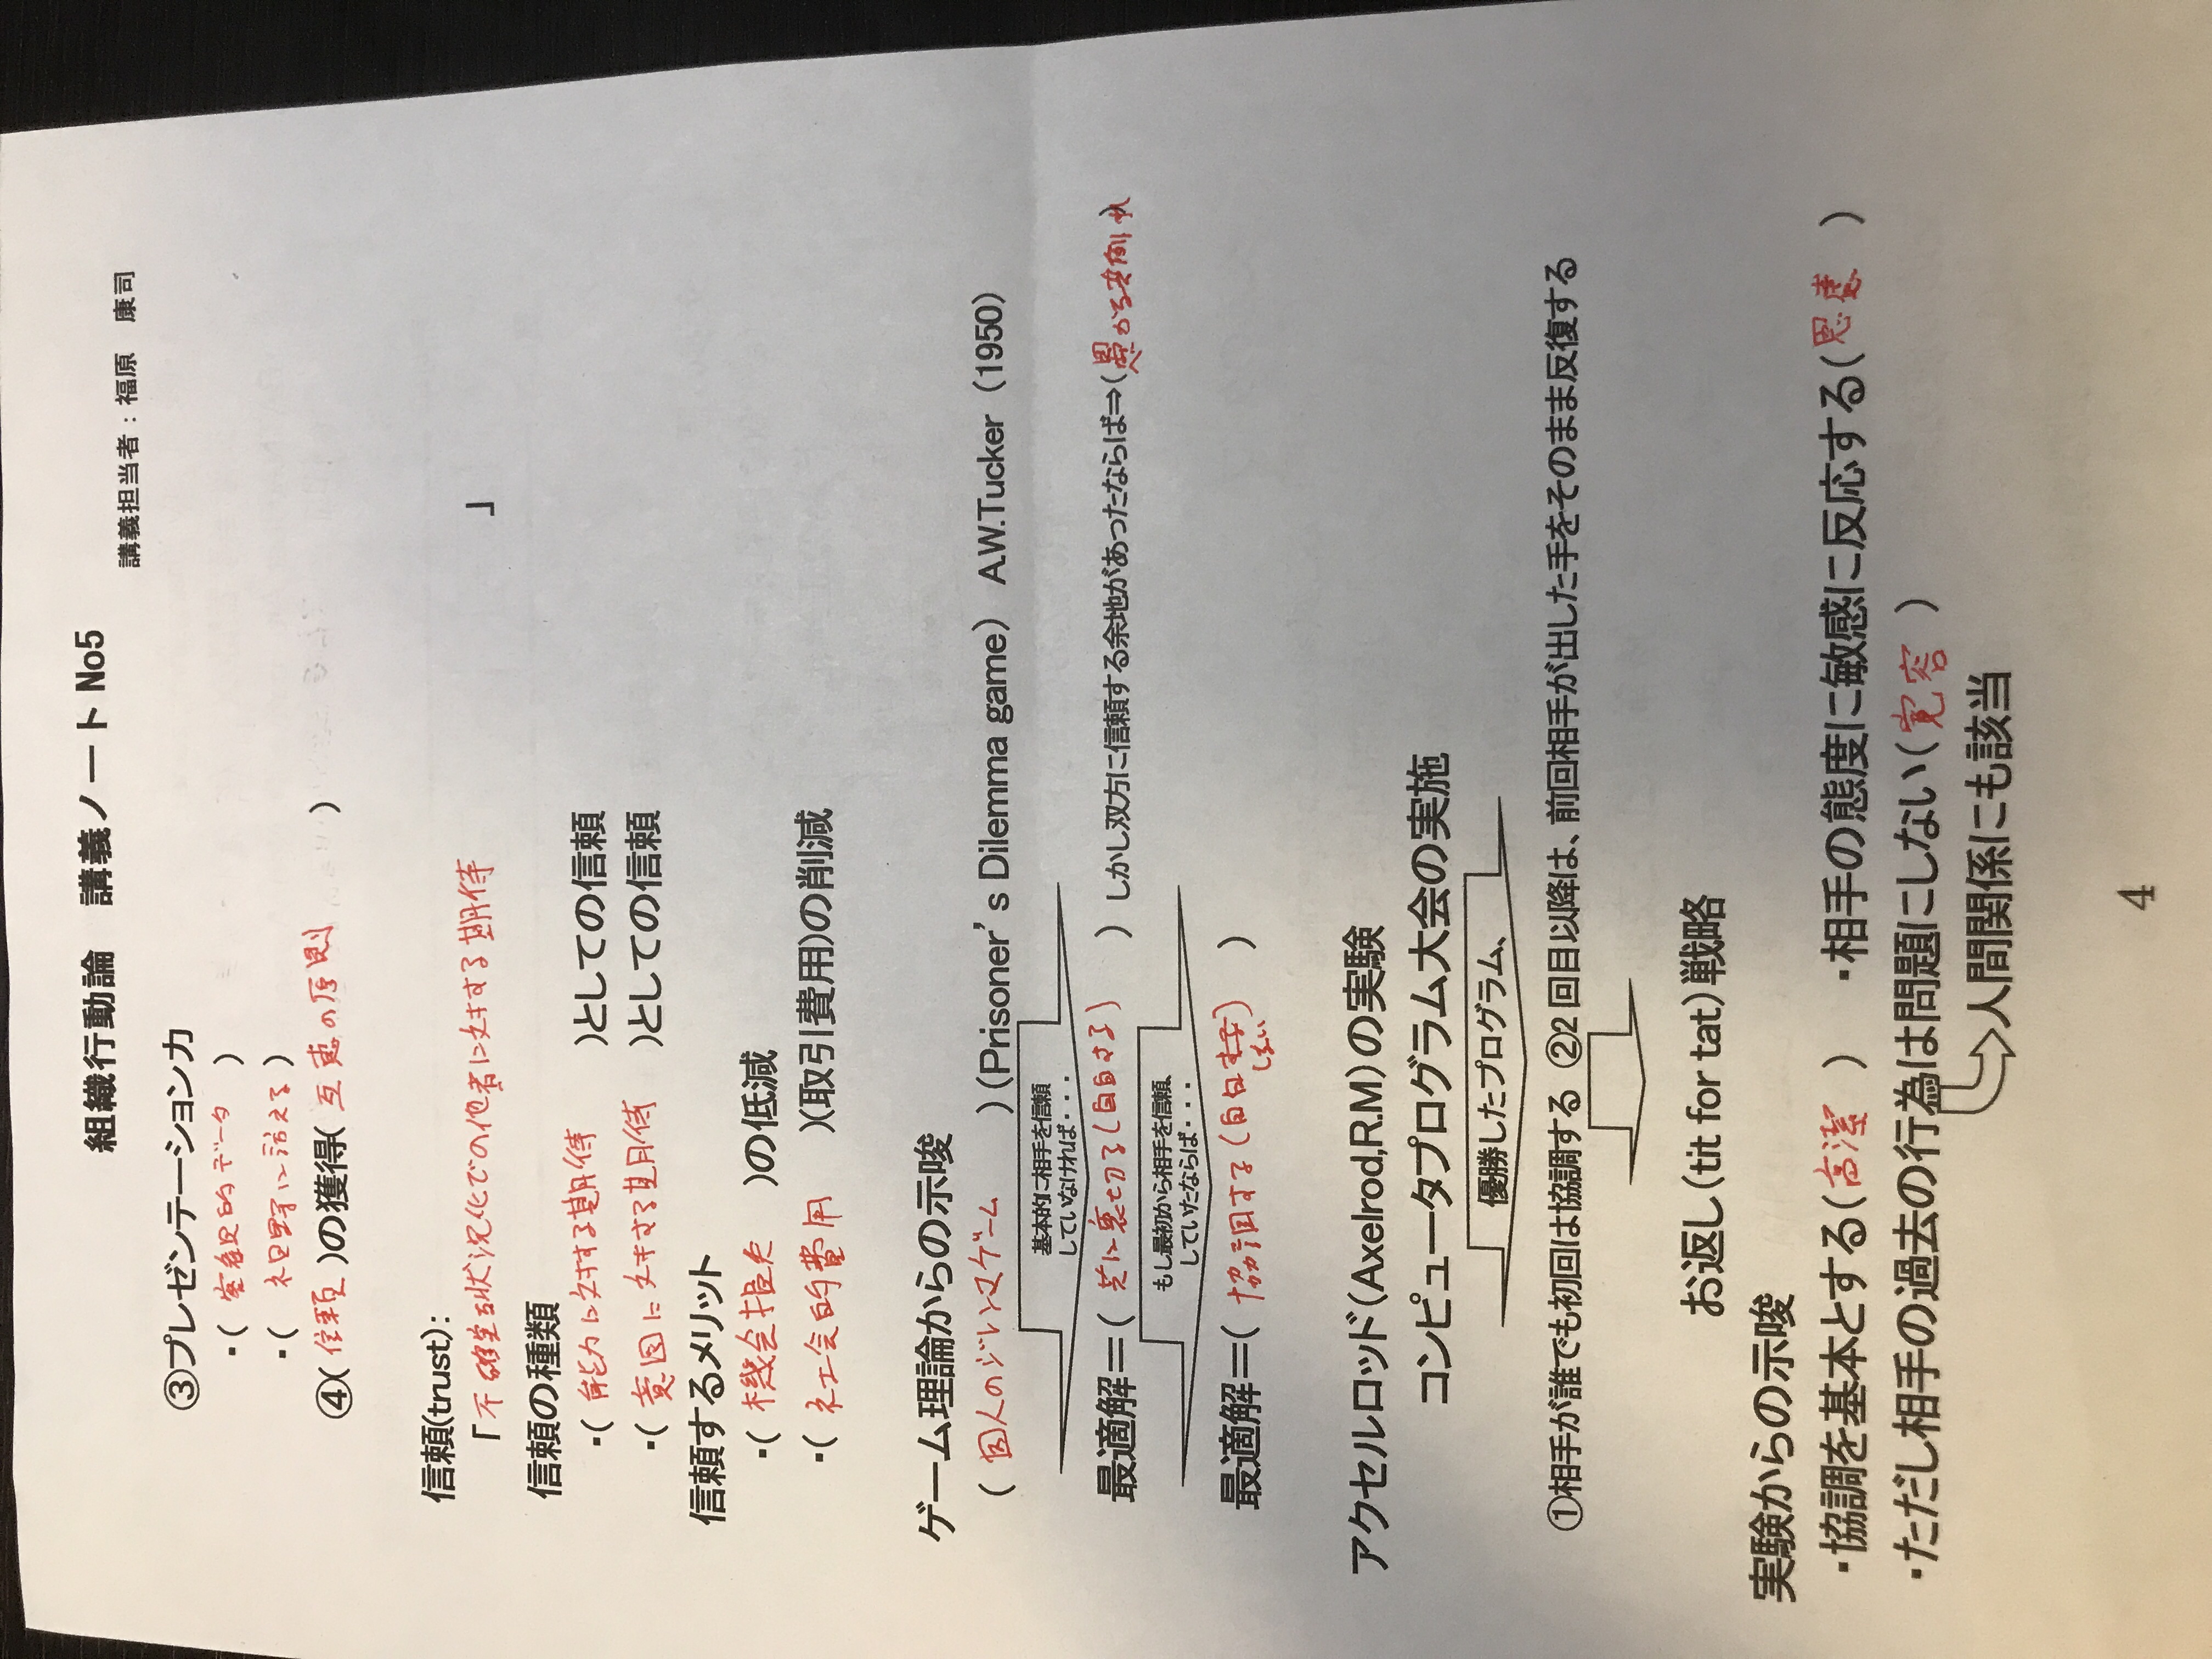 組織行動論　講義ノート No5
講義担当者：福原　康司
③プレゼンテーション力
・( 客観的データ )
・( 視野に訴える )
④( 信頼 )の獲得( 互恵の原則 )
信頼(trust)：
「不確実な状況化での他者に対する期待 」
信頼の種類
・( 能力に対する期待 )としての信頼
・( 意図に対する期待 )としての信頼
信頼するメリット
・( 機会損失 )の低減
・( 社会的費用 )(取引費用)の削減
ゲーム理論からの示唆
( 囚人のジレンマゲーム )（Prisoner’s Dilemma game） A.W.Tucker（1950）
基本的に相手を信頼
していなければ・・・
最適解＝( 共に裏切る(自白する) ) しかし双方に信頼する余地があったならば⇒(愚かる )
もし最初から相手を信頼、
していたならば・・・
最適解＝( 協調する(自白 しない) )
アクセルロッド（Axelrod,R.M）の実験
コンピュータプログラム大会の実施
優勝したプログラム、
①相手が誰でも初回は協調する　②2 回目以降は、前回相手が出した手をそのまま反復する
お返し（tit for tat）戦略
実験からの示唆
・協調を基本とする( 高潔 )　・相手の態度に敏感に反応する( )
・ただし相手の過去の行為は問題にしない( 寛容 )
人間関係にも該当
4